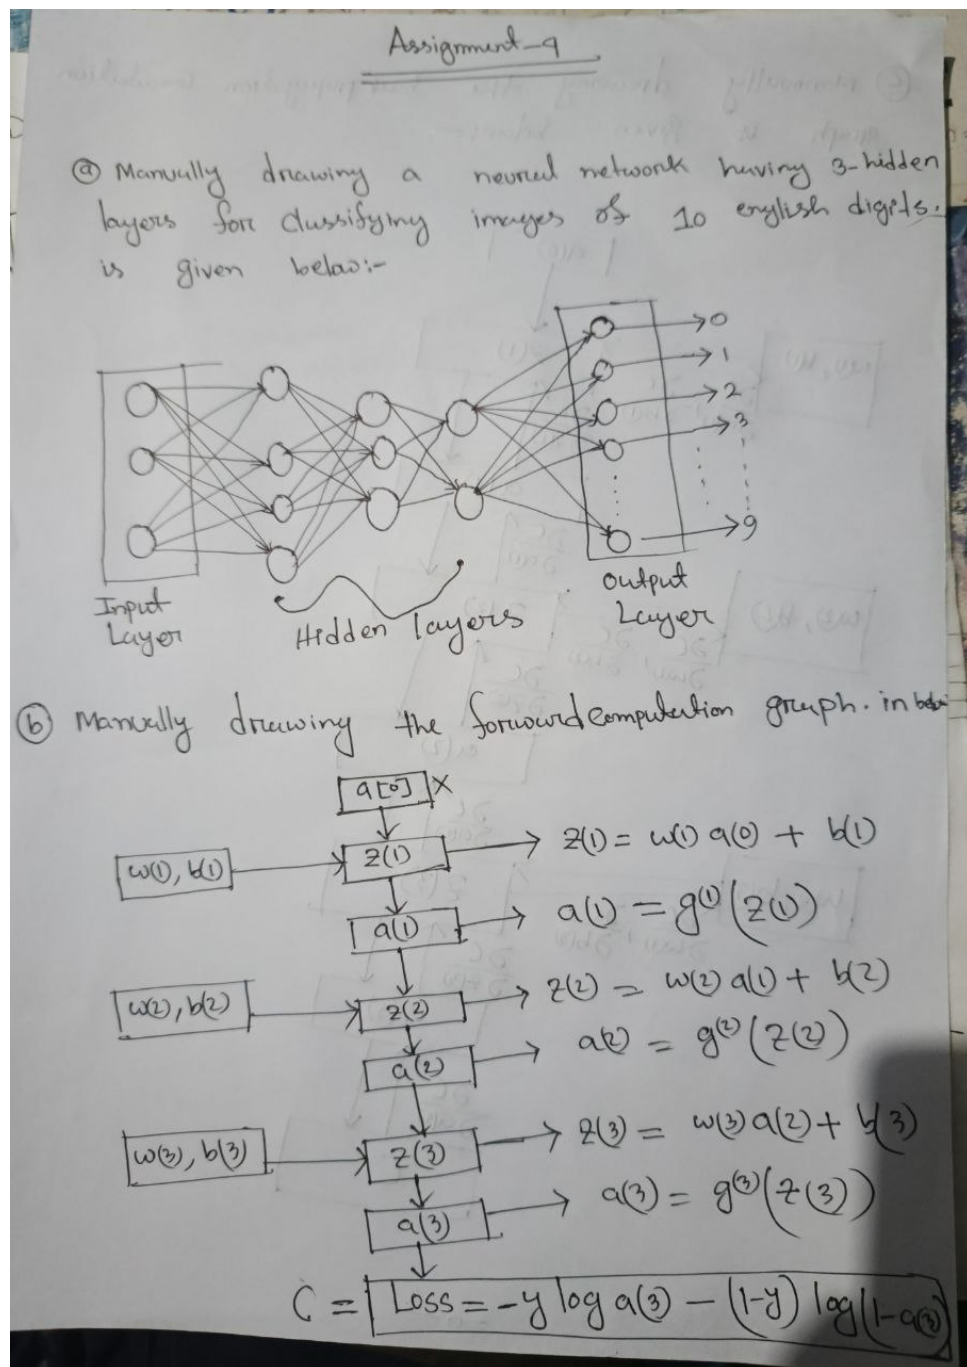 Assignment-4
(a) Manually drawing a neural network having 3-hidden
layers for classifying images of 10 english digits.
is given below:-
0
1
2
3
9
Input
Layer
Hidden layers
Output
Layer
(b) Manually drawing the forward computation graph. in below
a[0] X
w(1), b(1)
z(1)
z(1) = w(1) a(0) + b(1)
a(1)
a(1) = g(1)(z(1))
w(2), b(2)
z(2)
z(2) = w(2) a(1) + b(2)
a(2)
a(2) = g(2)(z(2))
w(3), b(3)
z(3)
z(3) = w(3) a(2) + b(3)
a(3)
a(3) = g(3)(z(3))
C = Loss = -y log a(3) - (1-y) log(1-a(3))